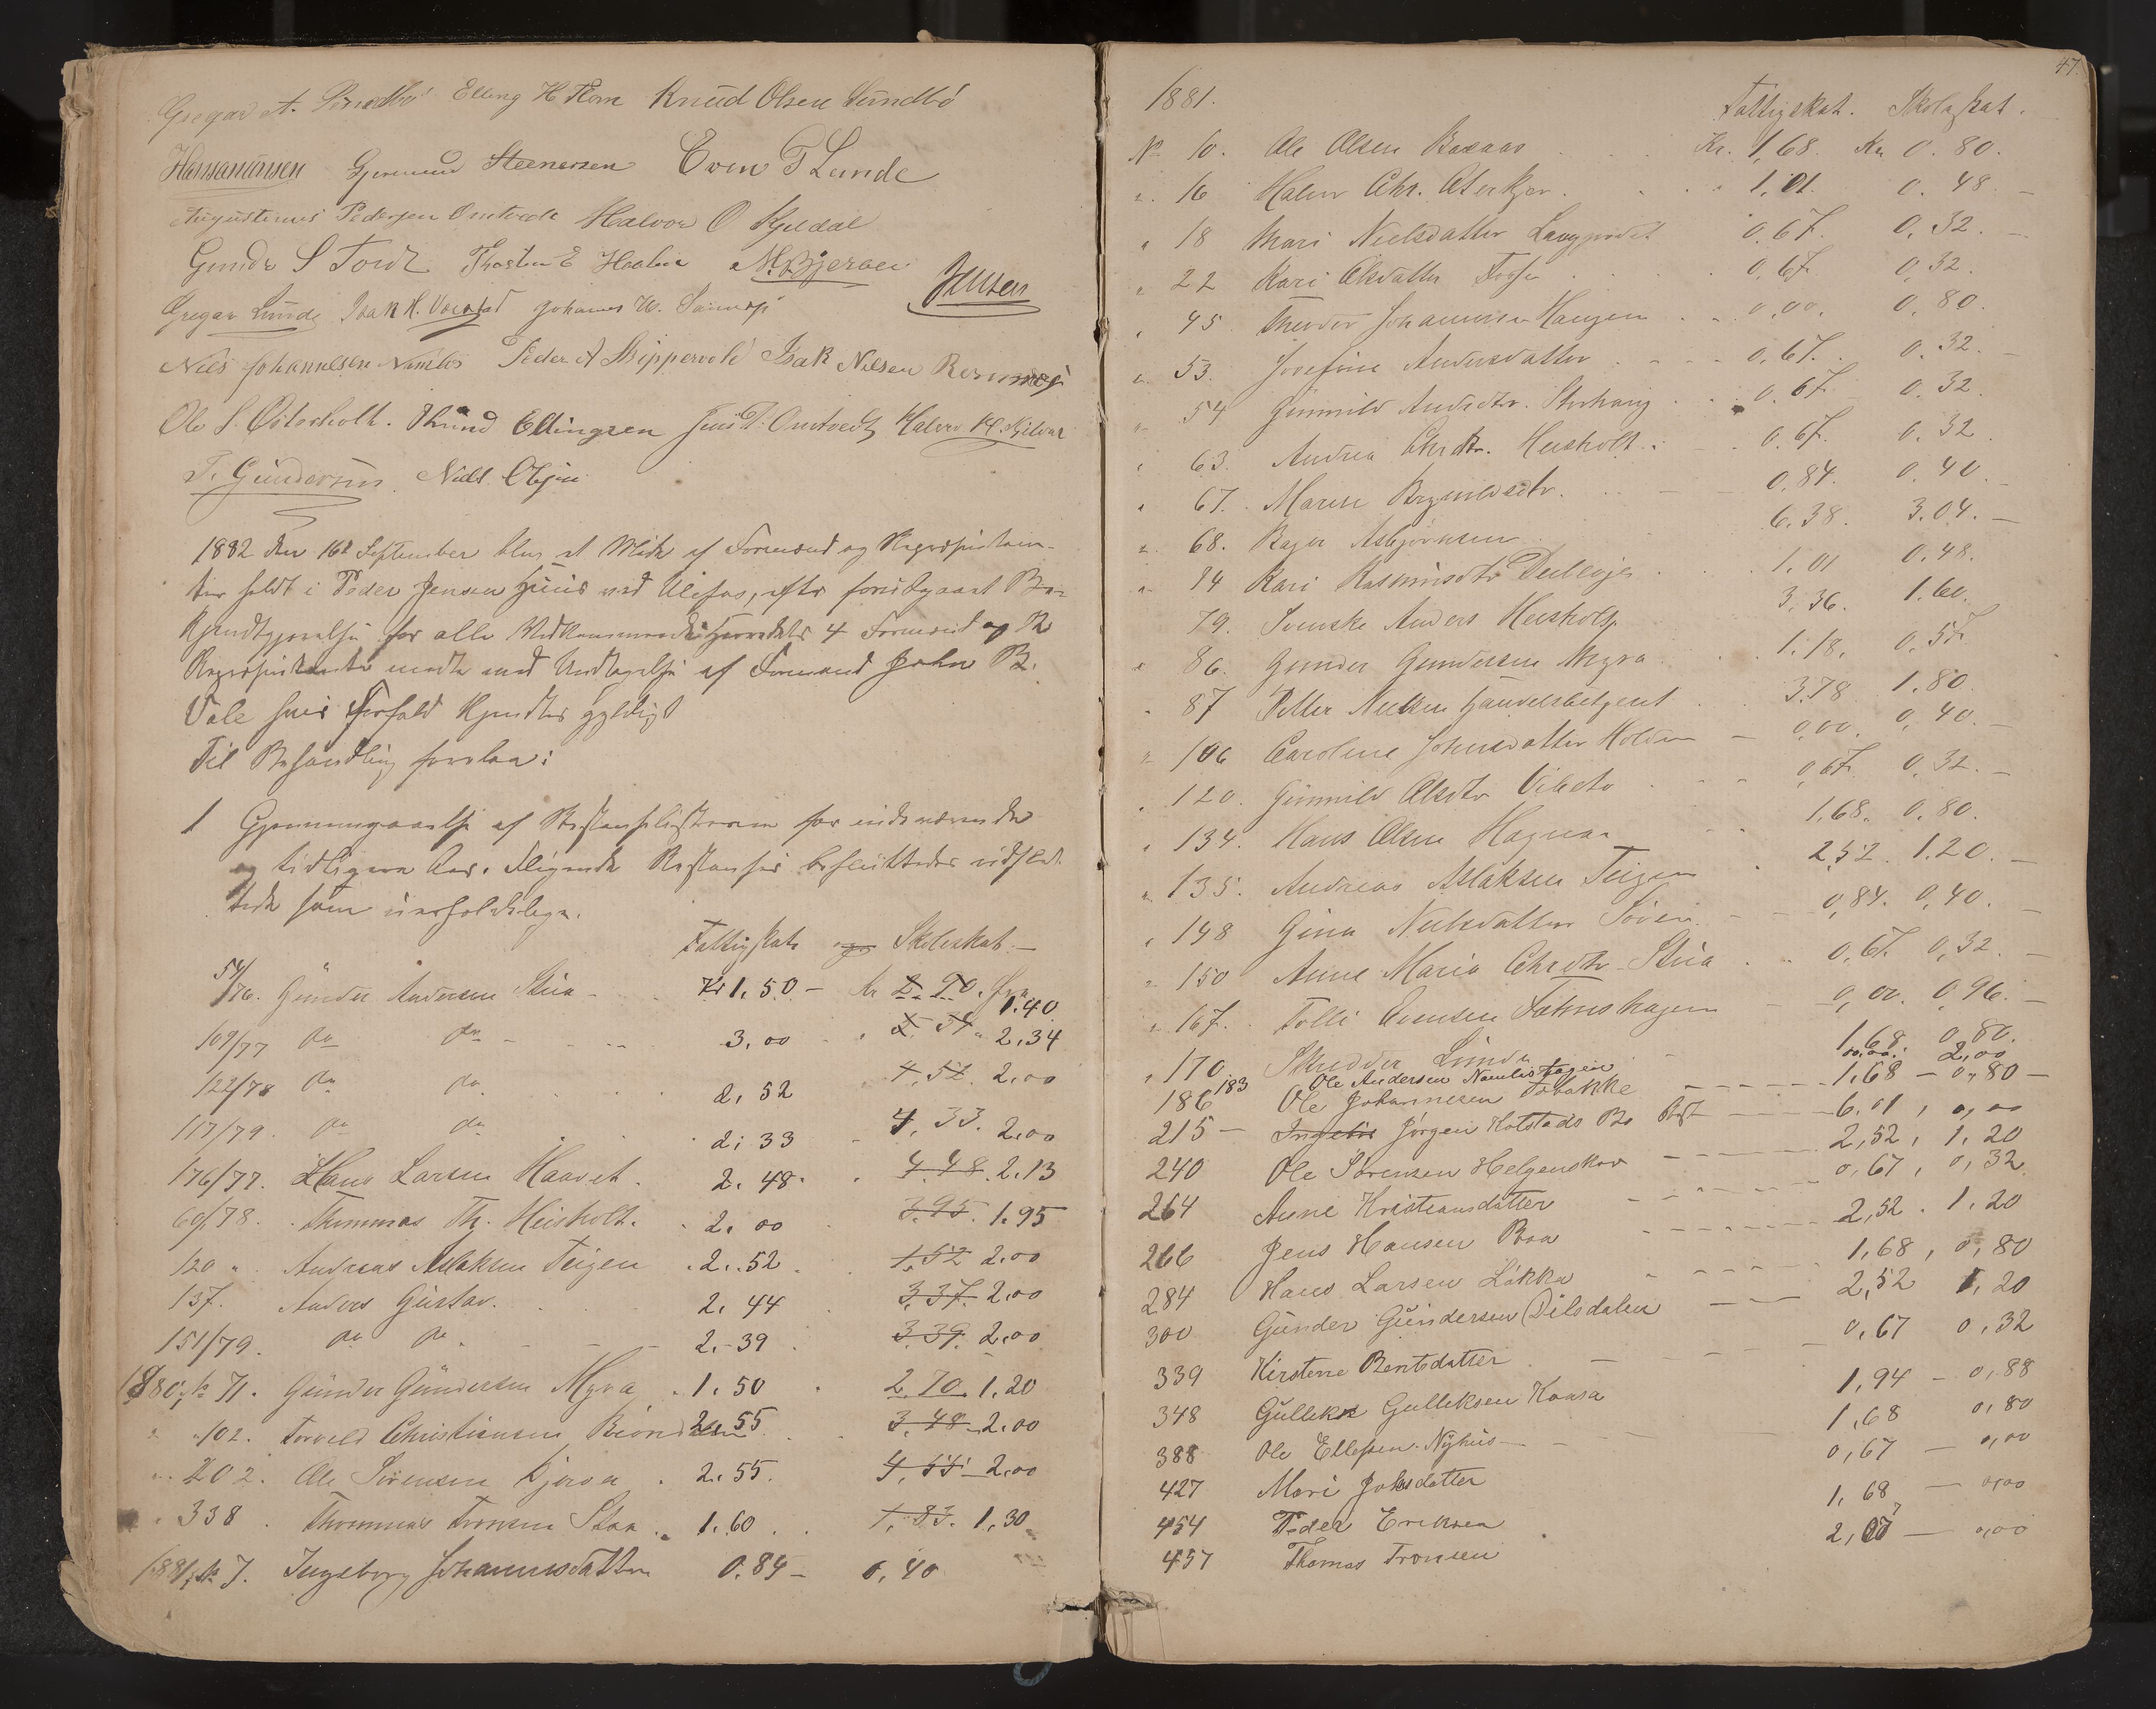 Gregar A. Sundbö Elling H Flom Knud Olsen Sundbö
Hansamunsen Gjermund Steenersen Even T Lunde
Augustinus Pedersen Omtvedt Halvor O Kjeldal
Gundr S Tord Thosten E Haatvedt M. Bjerven
Jensen
Gregar Lunde Isak H. Johannes H.
Niels Johannesen Namlos Peder A Skippervold Isak Nilsen Romnes
Ole S. Østerholt. Knud Ellingsen Jens P. Omtvedt Halvor H.
T. Gundersen Niels Olsen
1882 den 16de September blev et Møde af Formænd og Repræsentan-
ter holdt i Peder Jensens Huus ved Ulefos, efter forudgaaet Be-
kjendtgjørelse for alle Vedkommende. Herredets 4 Formænd og 12
Repræsentanter mødte med Undtagelse af Formand John B.
Vale hvis Forfald kjendtes gyldigt
Til Behandling forelaa:
1 Gjennemgaaelse af Restanselisterne for indeværende
og tidligere Aar. Følgende Restanser besluttedes udslet-
tede som uerholdelige.
Fattigskat og Skoleskat.—
54/76. Gunder Andersen Stua Kr 1.50 — Kr 2.90. 1.40
109/77 do do 3.00 2.34 2.34
122/78 do do 2.52 4.52 2.00
117/79. do do 2.33 4.33. 2.00
176/77. Hans Larsen Haavet. 2.48. 4.48. 2.13
60/78. Thommas Th. Heisholt. 2.00 3.95. 1.95
120 " Andreas Aslaksen Teigen 2.52 1.52 2.00
137. Anders Gustav. 2.44 3.37. 2.00
151/79. do do 2.39 3.39. 2.00
1880, № 71. Gunder Gundersen Myra 1.50 2.70. 1.20
" 102. Torvald Christiansen 2.55 3.48 2.00
" 202. Ole Sørensen Bjerva 2.55. 4.55 2.00
" 338. Thommas Tronsen Staa 1.60 1.83. 1.30
1881, № 7. Ingeborg Johannesdatter 0.84 — 0.40
47.
1881. Fattigskat. Skoleskat.
№ 10. Ole Olsen Baxaas Kr. 1,68. Kr 0.80.
" 16 Halvor Chr. 1,01. 0.48 —
" 18 Mari Nielsdatter 0,67. 0.32. —
" 22 Kari Olsdatter 0,67. 0,32.
" 45 Theodor Johannesen Haugen 0,00. 0.80.
" 53. Josefine Andersdatter 0,67. 0.32. —
" 54 Gunnild Andsdtr. 0.67. 0.32.
" 63. Andrea Chrdtr. Heisholt. 0.67. 0.32.
" 67. Maren Brynildsdtr. 0,84. 0.40. —
" 68. Asbjørnsen 6.38. 3.04. —
" 74 Kari Rasmusdtr 1.01 0.48.
79. Svenske Anders Heisholt 3.36. 1.60.
" 86. Gunder Gundersen Myra 1.18. 0.57.
" 87 Petter Nielsen Handelsbetjent 3.78 1.80.
" 106 Caroline Johnsdatter Holden — 0,00. 0,40. —
" 120. Gunnild Olsdtr Vibeto 0,67. 0.32. —
" 134. Hans Olsen Hagnaa 1,68. 0.80.
" 135. Andreas Aslaksen Teigen 2,52. 1.20. —
" 148 Gina Nielsdatter 0,84. 0,40. —
" 150 Anne Maria Chrdtr Stua 0,67. 0,32. —
" 167. Tolli Evensen 0,00. 0,96. —
" 170 Skrædder Lunde 1,68. 0,80.
183 Ole Andersen Namloshagen 00.00. 2,00
186 Ole Johannesen Tobakke 1,68 — 0,80 —
215 — Jørgen Kolstads Bo 6.01, 0,00
240 Ole Sørensen Helgenskov 2,52, 1,20
264 Anne Kristiansdatter 0,67, 0,32.
266 Jens Hansen Boa 2,52. 1,20
284 Hans Larsen Løkka 1,68, 0,80
300 Gunder Gundersen Dilsdalen 2,52 1,20
339 Kirstene Bentsdatter 0,67 0,32
348 Gullek Gulleksen Kaasa 1,94 — 0,88
388 Ole Ellefsen Nyhus — 1,68 0,80
427 Mari Johsdatter 0,67 — 0,00
454 Peder Eriksen 1,68 — 0,00
457 Thomas Tronsen 2,07 — 0,00